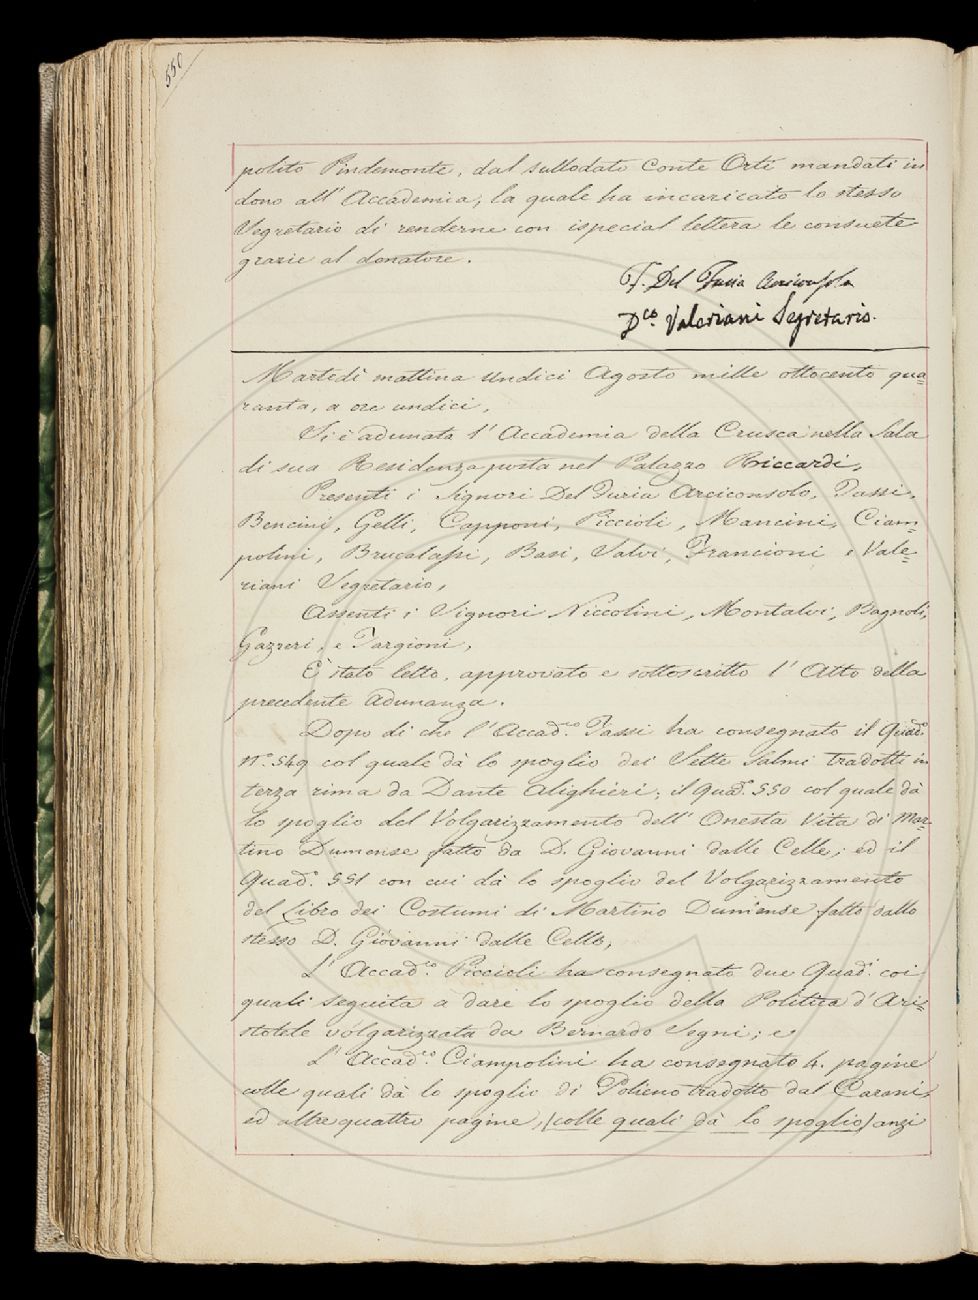 550
polito Pindemonte, dal sullodato Conte Orti mandati in
dono all' Accademia, la quale ha incaricato lo stesso
Segretario di renderne con ispecial lettera le consuete
grazie al donatore.
F. Del Furia Arciconsolo
D.co Valeriani Segretario.
Martedì mattina undici Agosto mille ottocento qua=
ranta, a ore undici,
Si è adunata l' Accademia della Crusca nella Sala
di sua Residenza posta nel Palazzo Riccardi,
Presenti i Signori Del Furia Arciconsolo, Tassi,
Bencini, Gelli, Capponi, Piccioli, Mancini, Ciam=
polini, Brucalassi, Basi, Salvi, Francioni e Vale=
riani Segretario,
Assenti i Signori Niccolini, Montalvi, Bagnoli,
Gazzeri, e Targioni,
È stato letto, approvato e sottoscritto l' Atto della
precedente Adunanza.
Dopo di che l' Accad.co Tassi ha consegnato il Quad.o
N.o 549 col quale dà lo spoglio dei Sette Salmi tradotti in
terza rima da Dante Alighieri; il Quad.o 550 col quale dà
lo spoglio del Volgarizzamento dell' Onesta Vita di Mar=
tino Dumense fatto da D. Giovanni dalle Celle; ed il
Quad.o 551 con cui dà lo spoglio del Volgarizzamento
del Libro dei Costumi di Martino Dumense fatto dallo
stesso D. Giovanni dalle Celle,
L' Accad.co Piccioli ha consegnato due Quad.i coi
quali seguita a dare lo spoglio della Politica d' Ari=
stotele volgarizzata da Bernardo Segni; e
L' Accad.co Ciampolini ha consegnato 4. pagine
colle quali dà lo spoglio di Polieno tradotto dal Carani,
ed altre quattro pagine, (colle quali dà lo spoglio) anzi